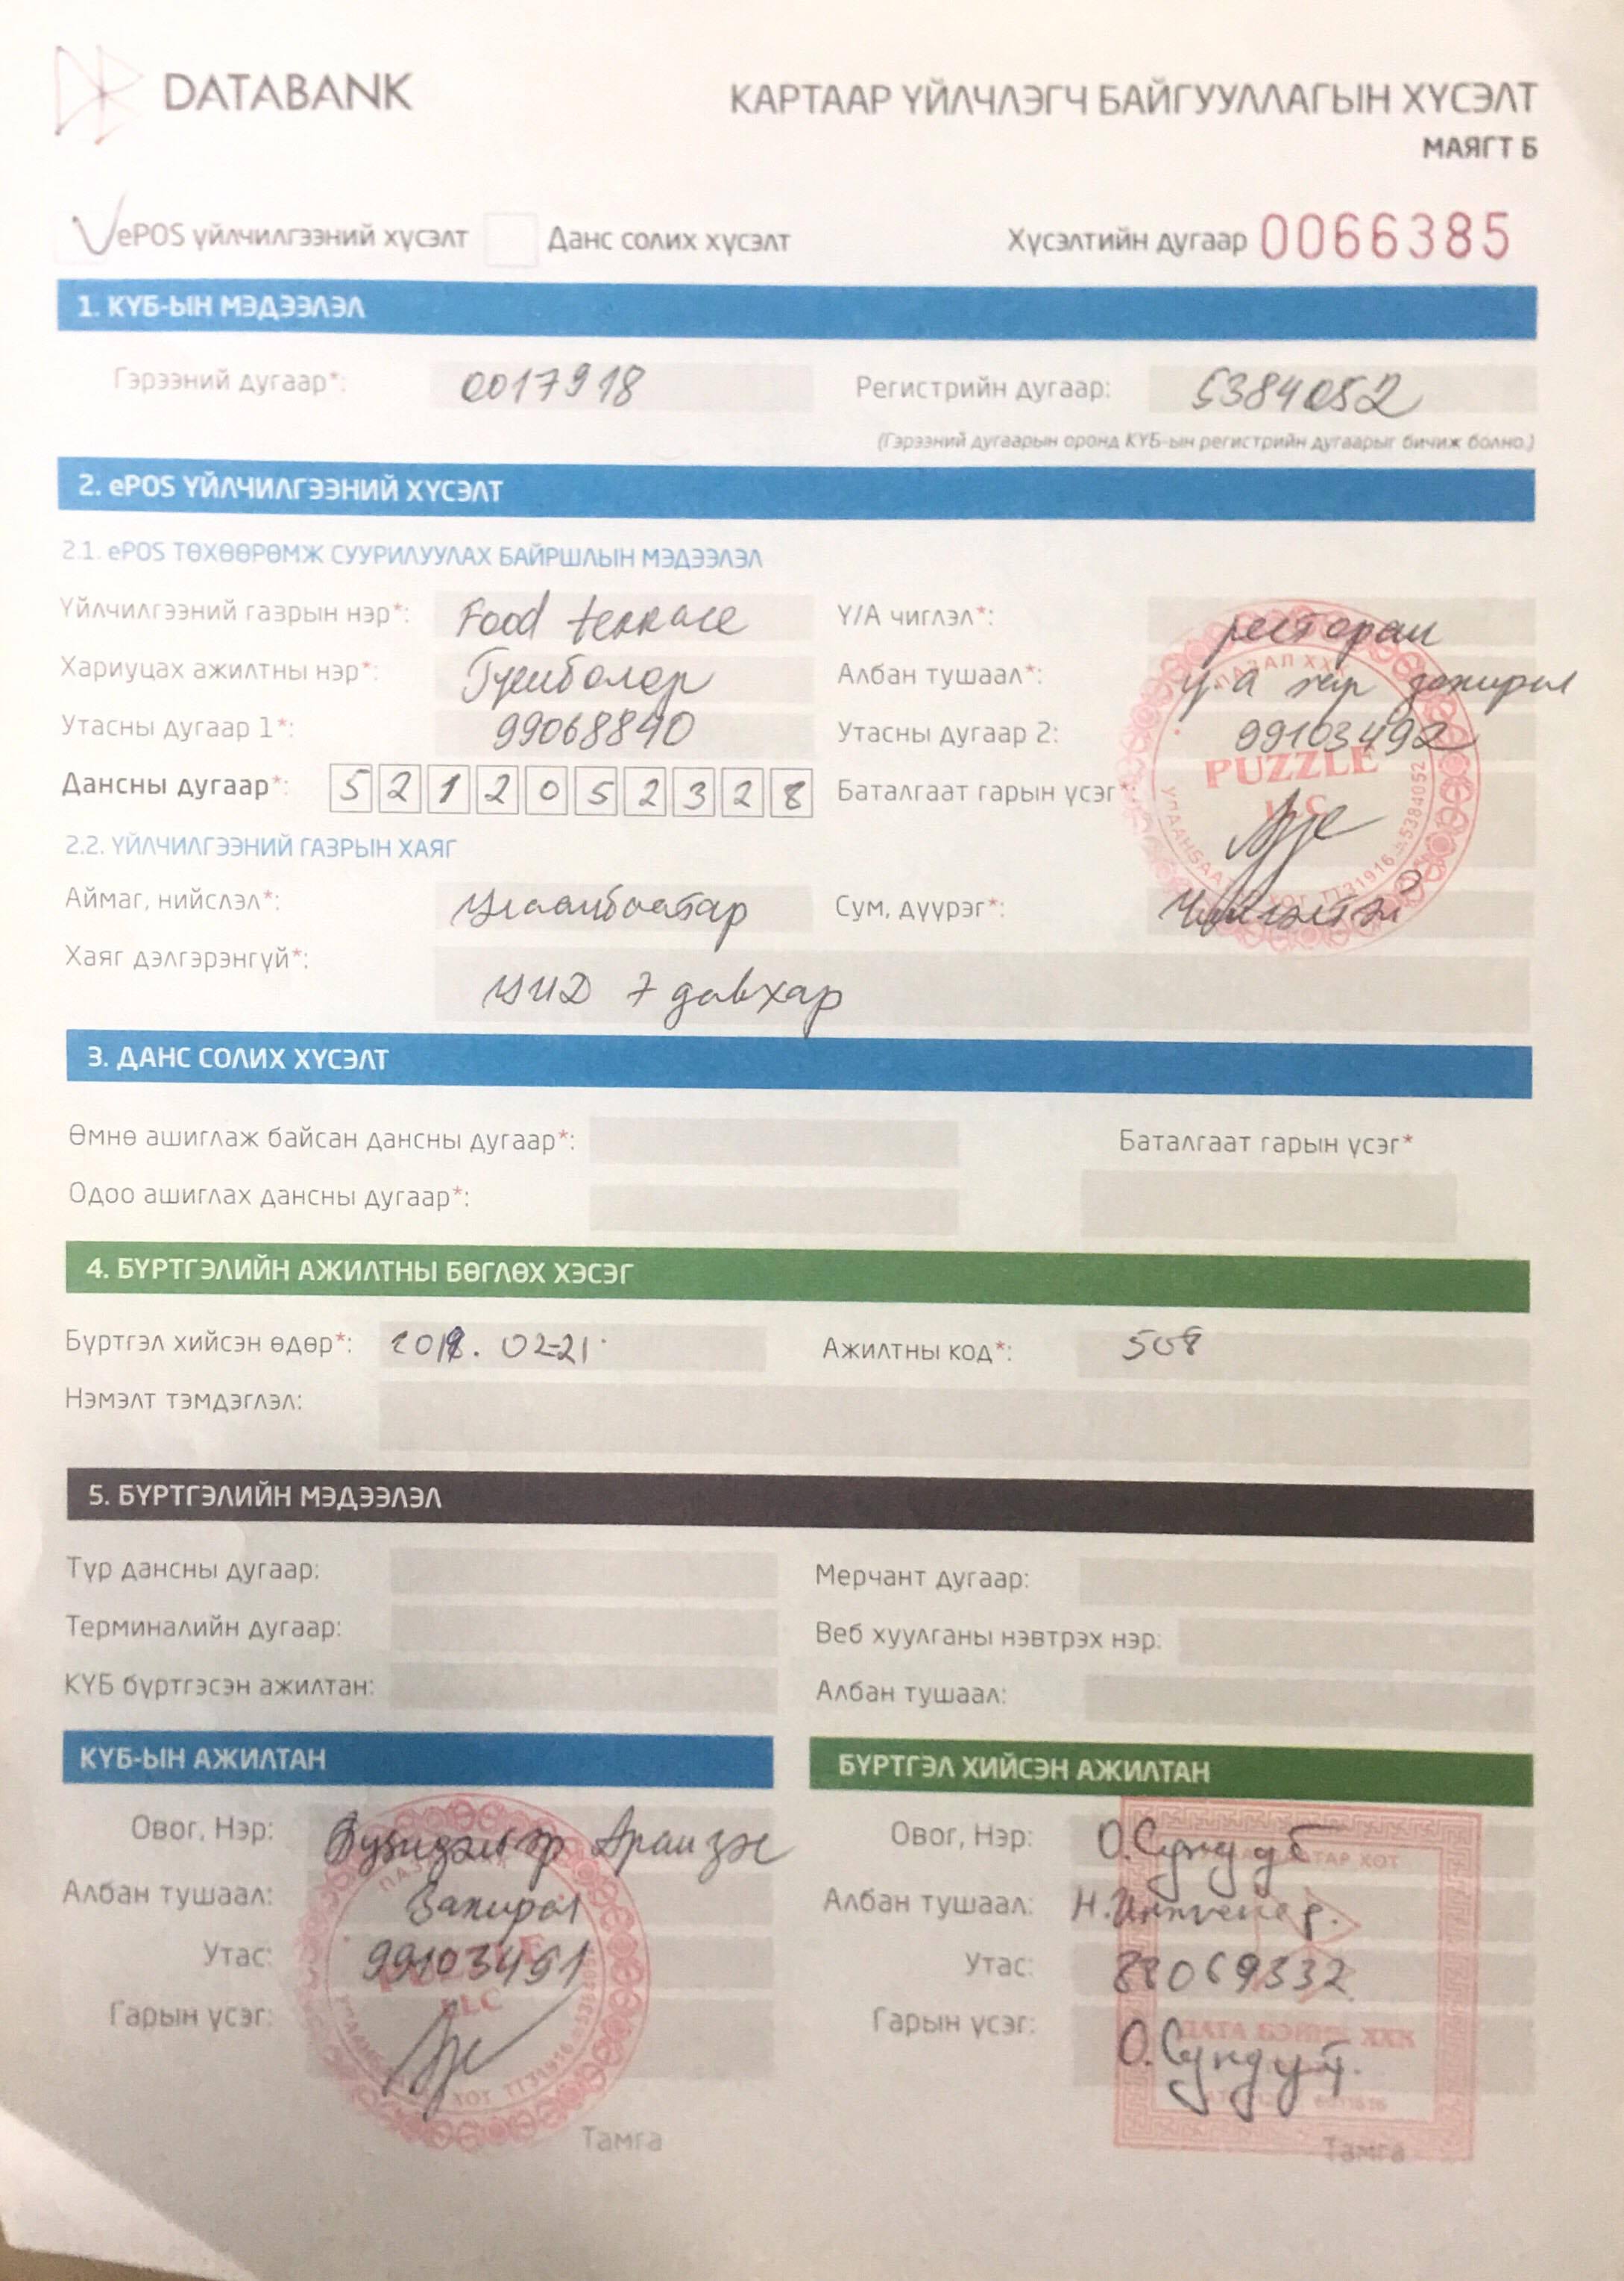 DATABANK
КАРТААР ҮЙЛЧЛЭГЧ БАЙГУУЛЛАГЫН ХҮСЭЛТ
МАЯГТ Б
ePOS үйлчилгээний хүсэлт Данс солих хүсэлт Хүсэлтийн дугаар 0066385
1. КҮБ-ЫН МЭДЭЭЛЭЛ
Гэрээний дугаар*: 0017918 Регистрийн дугаар: 5384052
(Гэрээний дугаарын оронд КҮБ-ын регистрийн дугаарыг бичиж болно.)
2. ePOS ҮЙЛЧИЛГЭЭНИЙ ХҮСЭЛТ
2.1. ePOS ТӨХӨӨРӨМЖ СУУРИЛУУЛАХ БАЙРШЛЫН МЭДЭЭЛЭЛ
Үйлчилгээний газрын нэр*: Food terrace Ү/А чиглэл*: ресторан
Хариуцах ажилтны нэр*: Гүнболор Албан тушаал*: Ү.А хар захирал
Утасны дугаар 1*: 99068840 Утасны дугаар 2: 99103492
Дансны дугаар*: 5212052328 Баталгаат гарын үсэг*:
PUZZLE
LLC
2.2. ҮЙЛЧИЛГЭЭНИЙ ГАЗРЫН ХАЯГ
Аймаг, нийслэл*: Улаанбаатар Сум, дүүрэг*: Чингэлтэй
Хаяг дэлгэрэнгүй*: УИД 7 давхар
3. ДАНС СОЛИХ ХҮСЭЛТ
Өмнө ашиглаж байсан дансны дугаар*: Баталгаат гарын үсэг*
Одоо ашиглах дансны дугаар*:
4. БҮРТГЭЛИЙН АЖИЛТНЫ БӨГЛӨХ ХЭСЭГ
Бүртгэл хийсэн өдөр*: 2018. 02-21 Ажилтны код*: 508
Нэмэлт тэмдэглэл:
5. БҮРТГЭЛИЙН МЭДЭЭЛЭЛ
Түр дансны дугаар: Мерчант дугаар:
Терминалийн дугаар: Веб хуулганы нэвтрэх нэр:
КҮБ бүртгэсэн ажилтан: Албан тушаал:
КҮБ-ЫН АЖИЛТАН БҮРТГЭЛ ХИЙСЭН АЖИЛТАН
Овог, Нэр: Овог, Нэр: О.Сундуй
Албан тушаал: Захирал Албан тушаал: Н.Инженер.
Утас: 99103491 Утас: 88069332
Гарын үсэг: Гарын үсэг: О.Сундуй.
ДАТА БЭНК ХХК
Тамга Тамга